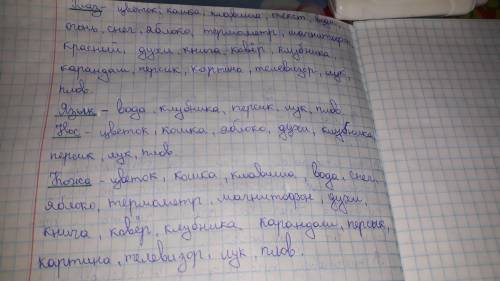 Глаз - цветок, кошка, клавиша, текст, вода,
огонь, снег, яблоко, термометр, магнитофон,
красний, духи, книга, ковёр, клубника,
карандаш, персик, картина, телевизор, лук,
плов.
Язык - вода, клубника, персик, лук, плов
Нос - цветок, кошка, яблоко, духи, клубника,
персик, лук, плов.
Кожа - цветок, кошка, клавиша, вода, снег,
яблоко, термометр, магнитофон, духи,
книга, ковёр, клубника карандаш, персик,
картина, телевизор, лук, плов.